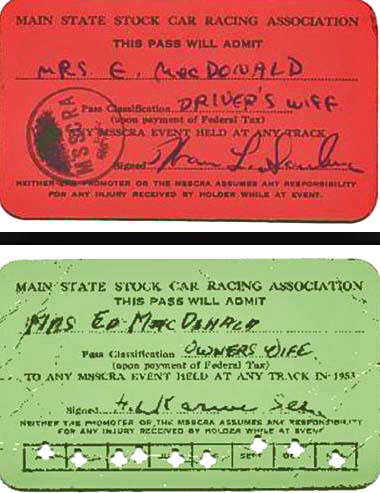 MAIN STATE STOCK CAR RACING ASSOCIATION
THIS PASS WILL ADMIT
MRS. E. MacDONALD
Pass Classification DRIVER'S WIFE
(upon payment of Federal Tax)
ANY MSSCRA EVENT HELD AT ANY TRACK
MSSCRA
Signed
NEITHER THE PROMOTER OR THE MSSCRA ASSUMES ANY RESPONSIBILITY
FOR ANY INJURY RECEIVED BY HOLDER WHILE AT EVENT.
MAIN STATE STOCK CAR RACING ASSOCIATION
THIS PASS WILL ADMIT
MRS ED MacDONALD
Pass Classification OWNERS WIFE
(upon payment of Federal Tax)
TO ANY MSSCRA EVENT HELD AT ANY TRACK IN 1953
Signed
NEITHER THE PROMOTER OR THE MSSCRA ASSUMES ANY RESPONSIBILITY
FOR ANY INJURY RECEIVED BY HOLDER WHILE AT EVENT
SEPT